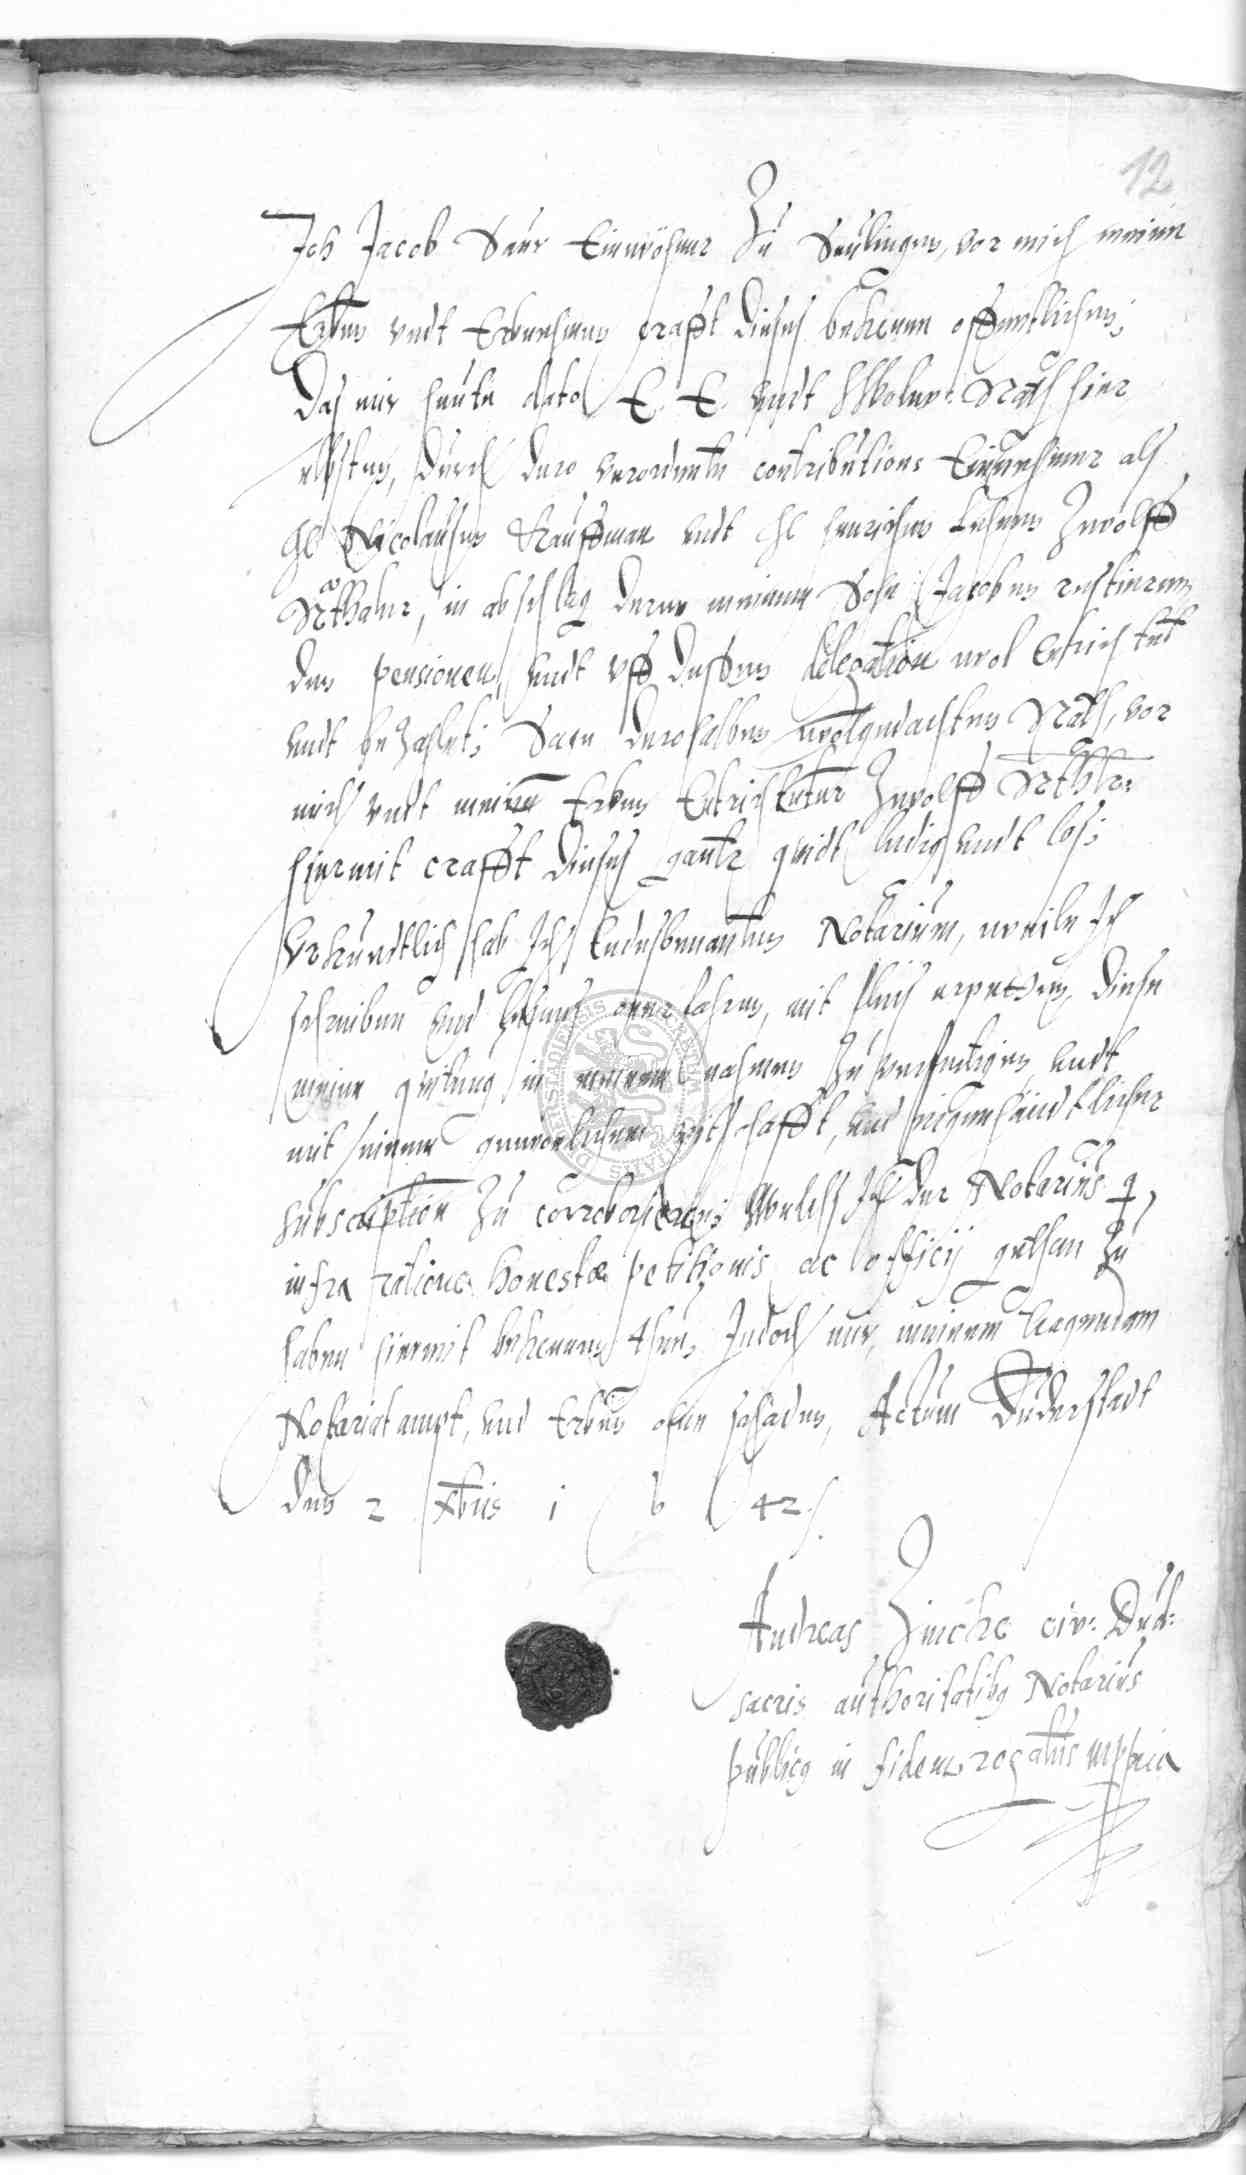 12
Ich Jacob Saur Einwöhner Zu Seulingen, vor mich meine
Erben undt Erbnehmen crafft dieses bekenne offentlichen,
Das mir heute dato E. E. undt Wolw: Rath hier
selbsten, durch dero verordente contributions Einnehmer als
Hl Nicolausen Kauffman undt Hl henrichen Zwolff
Rthaler, in abschlag derer meinem Sohn Jacoben restieren
den pensionen, undt uff dessen wol entrichtet
undt bezahlet; Sage derohalben wolgedachten Rath, vor
mich undt meine Erben Entrichteter Zwolff Rthlr:
hiermit crafft dieses gantz quidt ledig undt loß;
Uhrkundtlich hab Ich Endesbenanten Notarium, weile Ich
schreibens und lesens unerfahren, mit fleis erpetten, diese
meine quitung in meinem nahmen Zu verfertigen, undt
mit seinem gewonlichem pitschafft, und eigenhändtlicher
subscription Zu corroborieren; Welches Ich der Notarius
infra ratione honestæ petitionis ac officij gethan Zu
haben hiermit bekennen thue, Jedoch mir, meinem tragendem
Notariat ampt, und Erben ohne schaden, Actum Duderstadt
den 2 xbris 1642.
Andreas Zincke civ: Dud:
sacris authoritatibq Notarius
publicq in fidem rogatus mppria